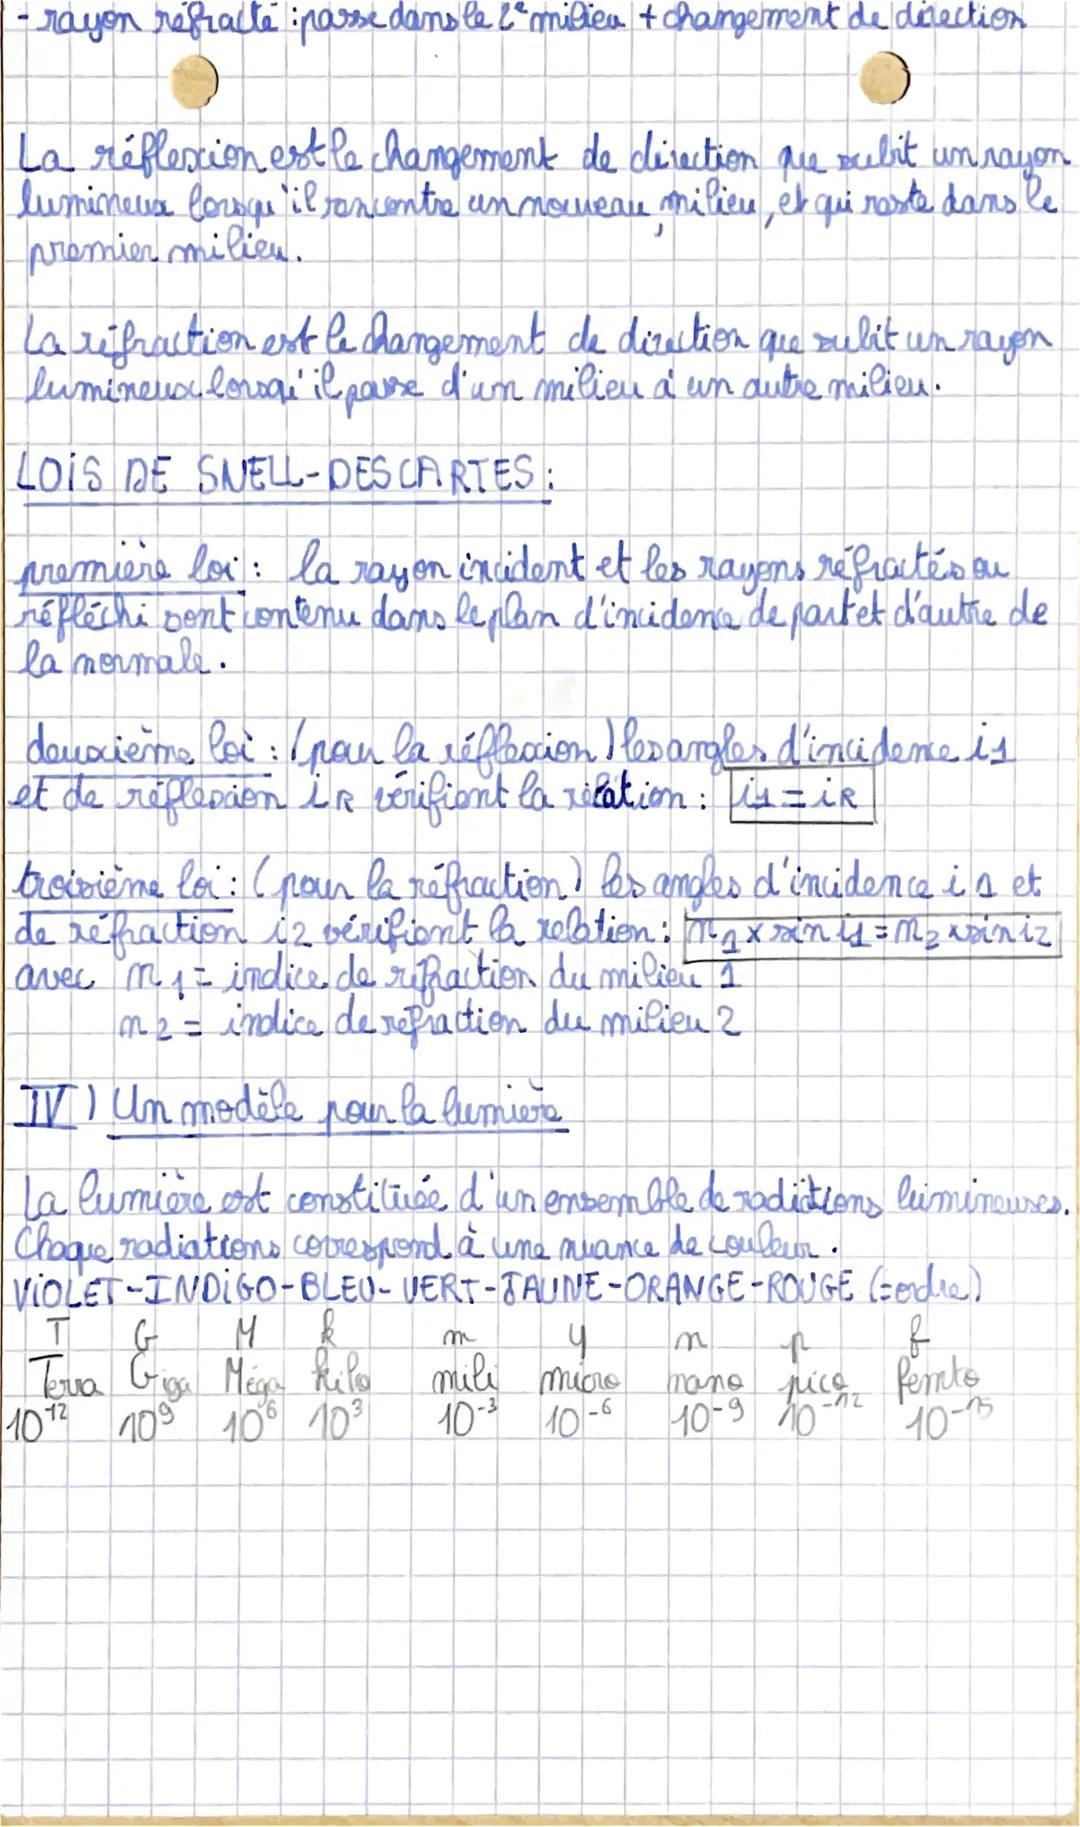 - rayon réfracté : passe dans le 2e milieu + changement de direction
La réflexion est le changement de direction que subit un rayon
lumineux lorsqu'il rencontre un nouveau milieu, et qui reste dans le
premier milieu.
La réfraction est le changement de direction que subit un rayon
lumineux lorsqu'il passe d'un milieu à un autre milieu.
LOIS DE SNELL-DESCARTES :
première loi : la rayon incident et les rayons réfractés ou
réfléchi sont contenu dans le plan d'incidence de part et d'autre de
la normale.
deuxième loi : (pour la réflexion) les angles d'incidence i1
et de réflexion iR vérifient la relation : i1 = iR
troisième loi : (pour la réfraction) les angles d'incidence i1 et
de réfraction i2 vérifient la relation : n1 x sin i1 = n2 x sin i2
avec n1 = indice de réfraction du milieu 1
n2 = indice de réfraction du milieu 2
IV) Un modèle pour la lumière
La lumière est constituée d'un ensemble de radiations lumineuses.
Chaque radiations correspond à une nuance de couleur.
VIOLET-INDIGO-BLEU-VERT-JAUNE-ORANGE-ROUGE (=ordre)
T G M k m y n p f
Terra Giga Méga kilo mili micro nano pico femto
10^12 10^9 10^6 10^3 10^-3 10^-6 10^-9 10^-12 10^-15